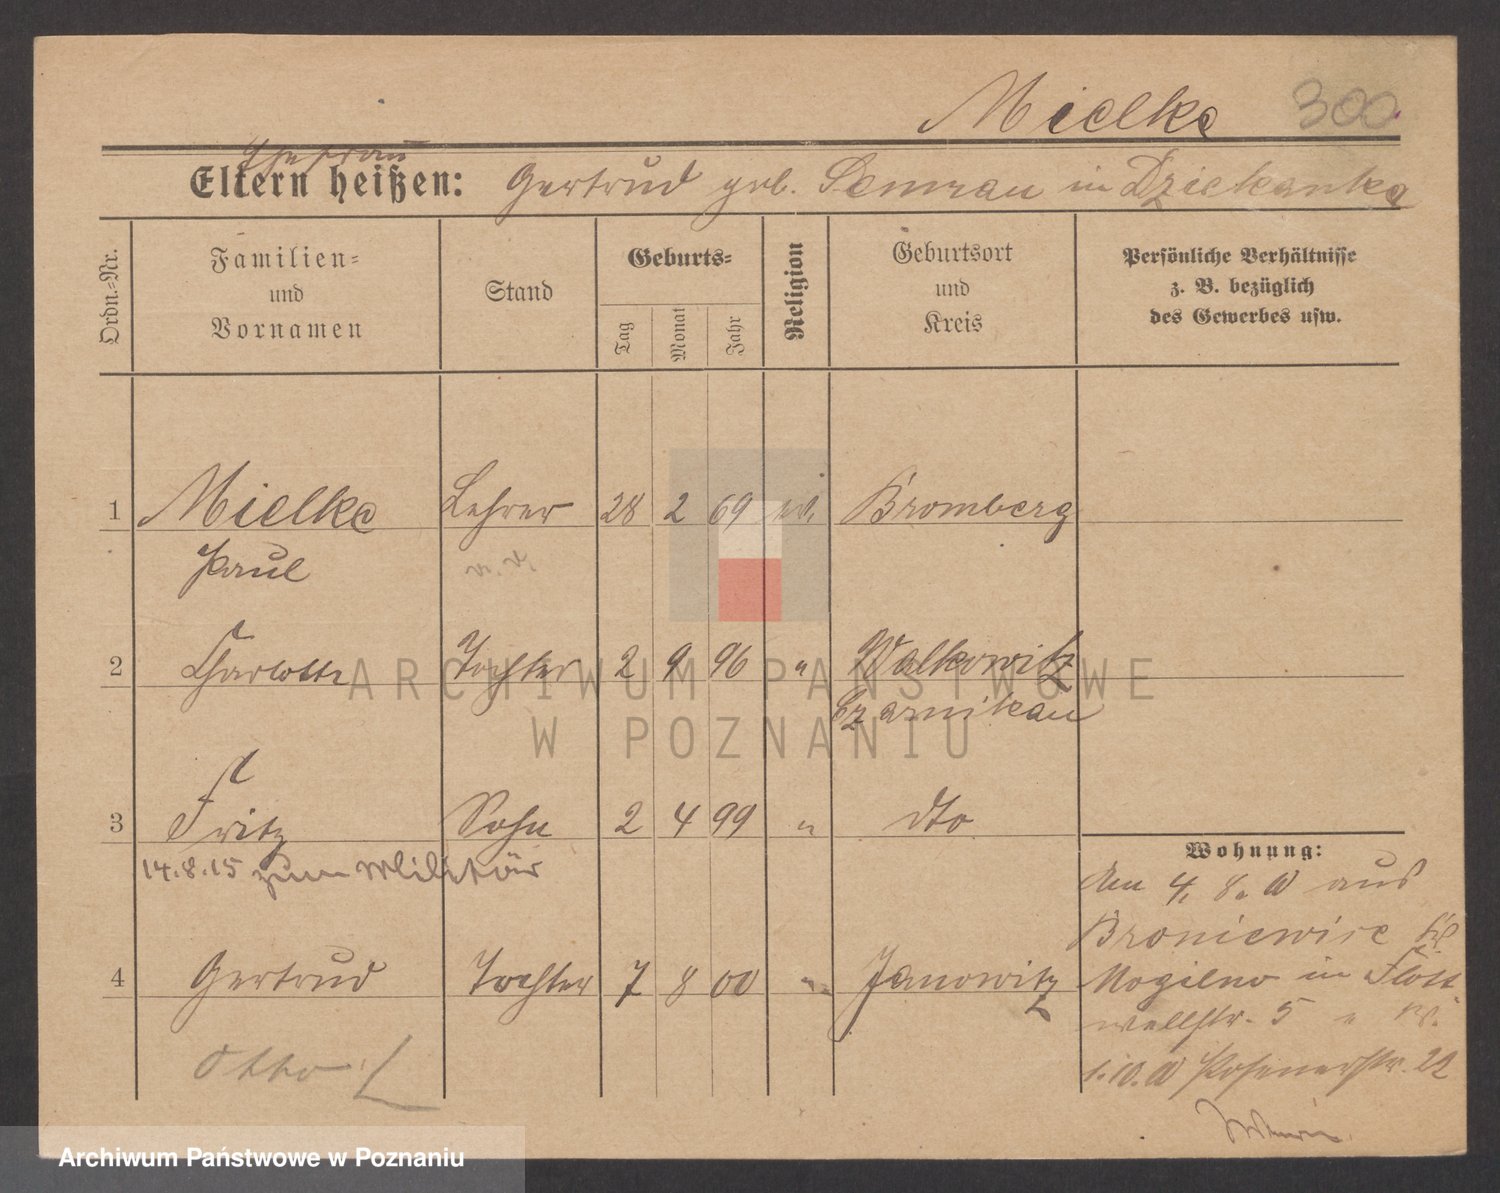 Mielke 300
Ehefrau
Eltern heißen: Gertrud geb. Semrau in Dziekanka
Ordn.-Nr.
Familien-
und
Vornamen
Stand
Geburts-
Tag
Monat
Jahr
Religion
Geburtsort
und
Kreis
Persönliche Verhältnisse
z. B. bezüglich
des Gewerbes usw.
1 Mielke Lehrer 28 2 69 ev. Bromberg
Paul
2 Charlotte Tochter 2 9 96 " Walkowitz
Czarnikau
3 Fritz Sohn 2 4 99 " dto
14.8.15 zum Militär
4 Gertrud Tochter 7 8 00 " Janowitz
Otto
Wohnung:
Am 4. 8. 00 aus
Broniewice
Mogilno in Flott
wellstr. 5
1.10.00 Posenerstr. 22
ARCHIWUM PAŃSTWOWE
W POZNANIU
Archiwum Państwowe w Poznaniu